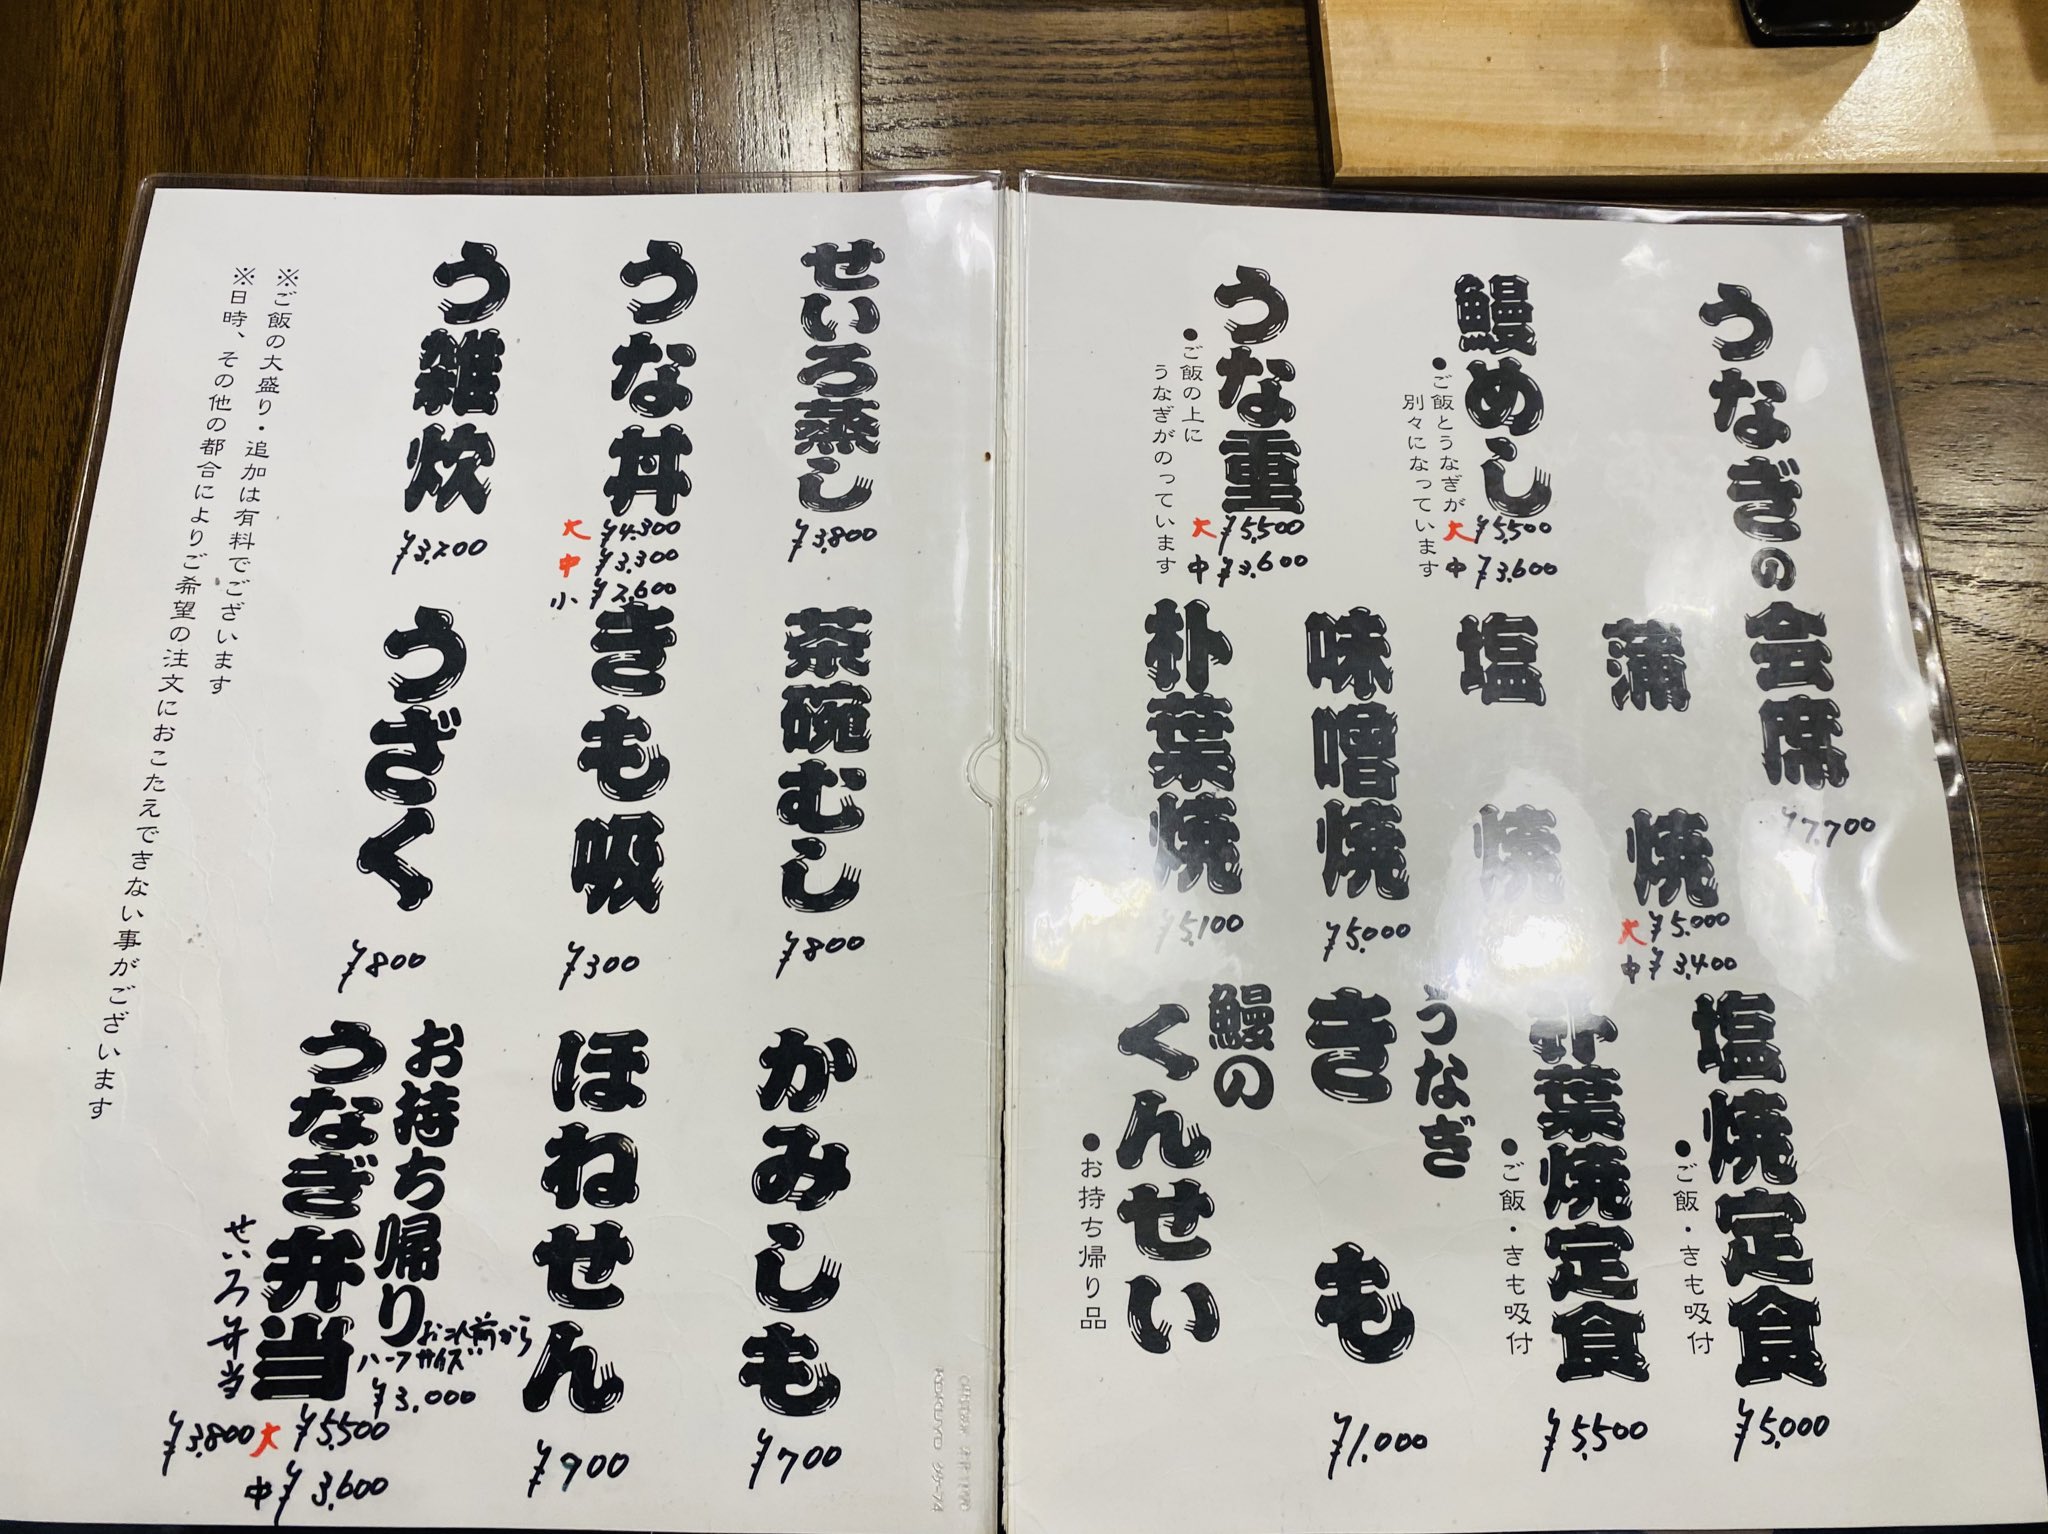 うなぎの会席
¥7,700
鰻めし
●ご飯とうなぎが
別々になっています
大 ¥5,500
中 ¥3,600
うな重
●ご飯の上に
うなぎがのっています
大 ¥5,500
中 ¥3,600
蒲焼
大 ¥5,000
中 ¥3,400
塩焼
味噌焼
¥5,000
朴葉焼
¥5,100
塩焼定食
●ご飯・きも吸付
¥5,000
朴葉焼定食
●ご飯・きも吸付
¥5,500
うなぎ
きも
¥1,000
鰻の
くんせい
●お持ち帰り品
せいろ蒸し
¥3,800
うな丼
大 ¥4,300
中 ¥3,300
小 ¥2,600
う雑炊
¥3,200
茶碗むし
¥800
きも吸
¥300
うざく
¥800
かみしも
¥700
ほねせん
¥900
お持ち帰り
うなぎ弁当
お二人前から
ハーフサイズ
¥3,000
大 ¥5,500
中 ¥3,600
せいろ弁当
¥3,800
※ご飯の大盛り・追加は有料でございます
※日時、その他の都合によりご希望の注文におこたえできない事がございます